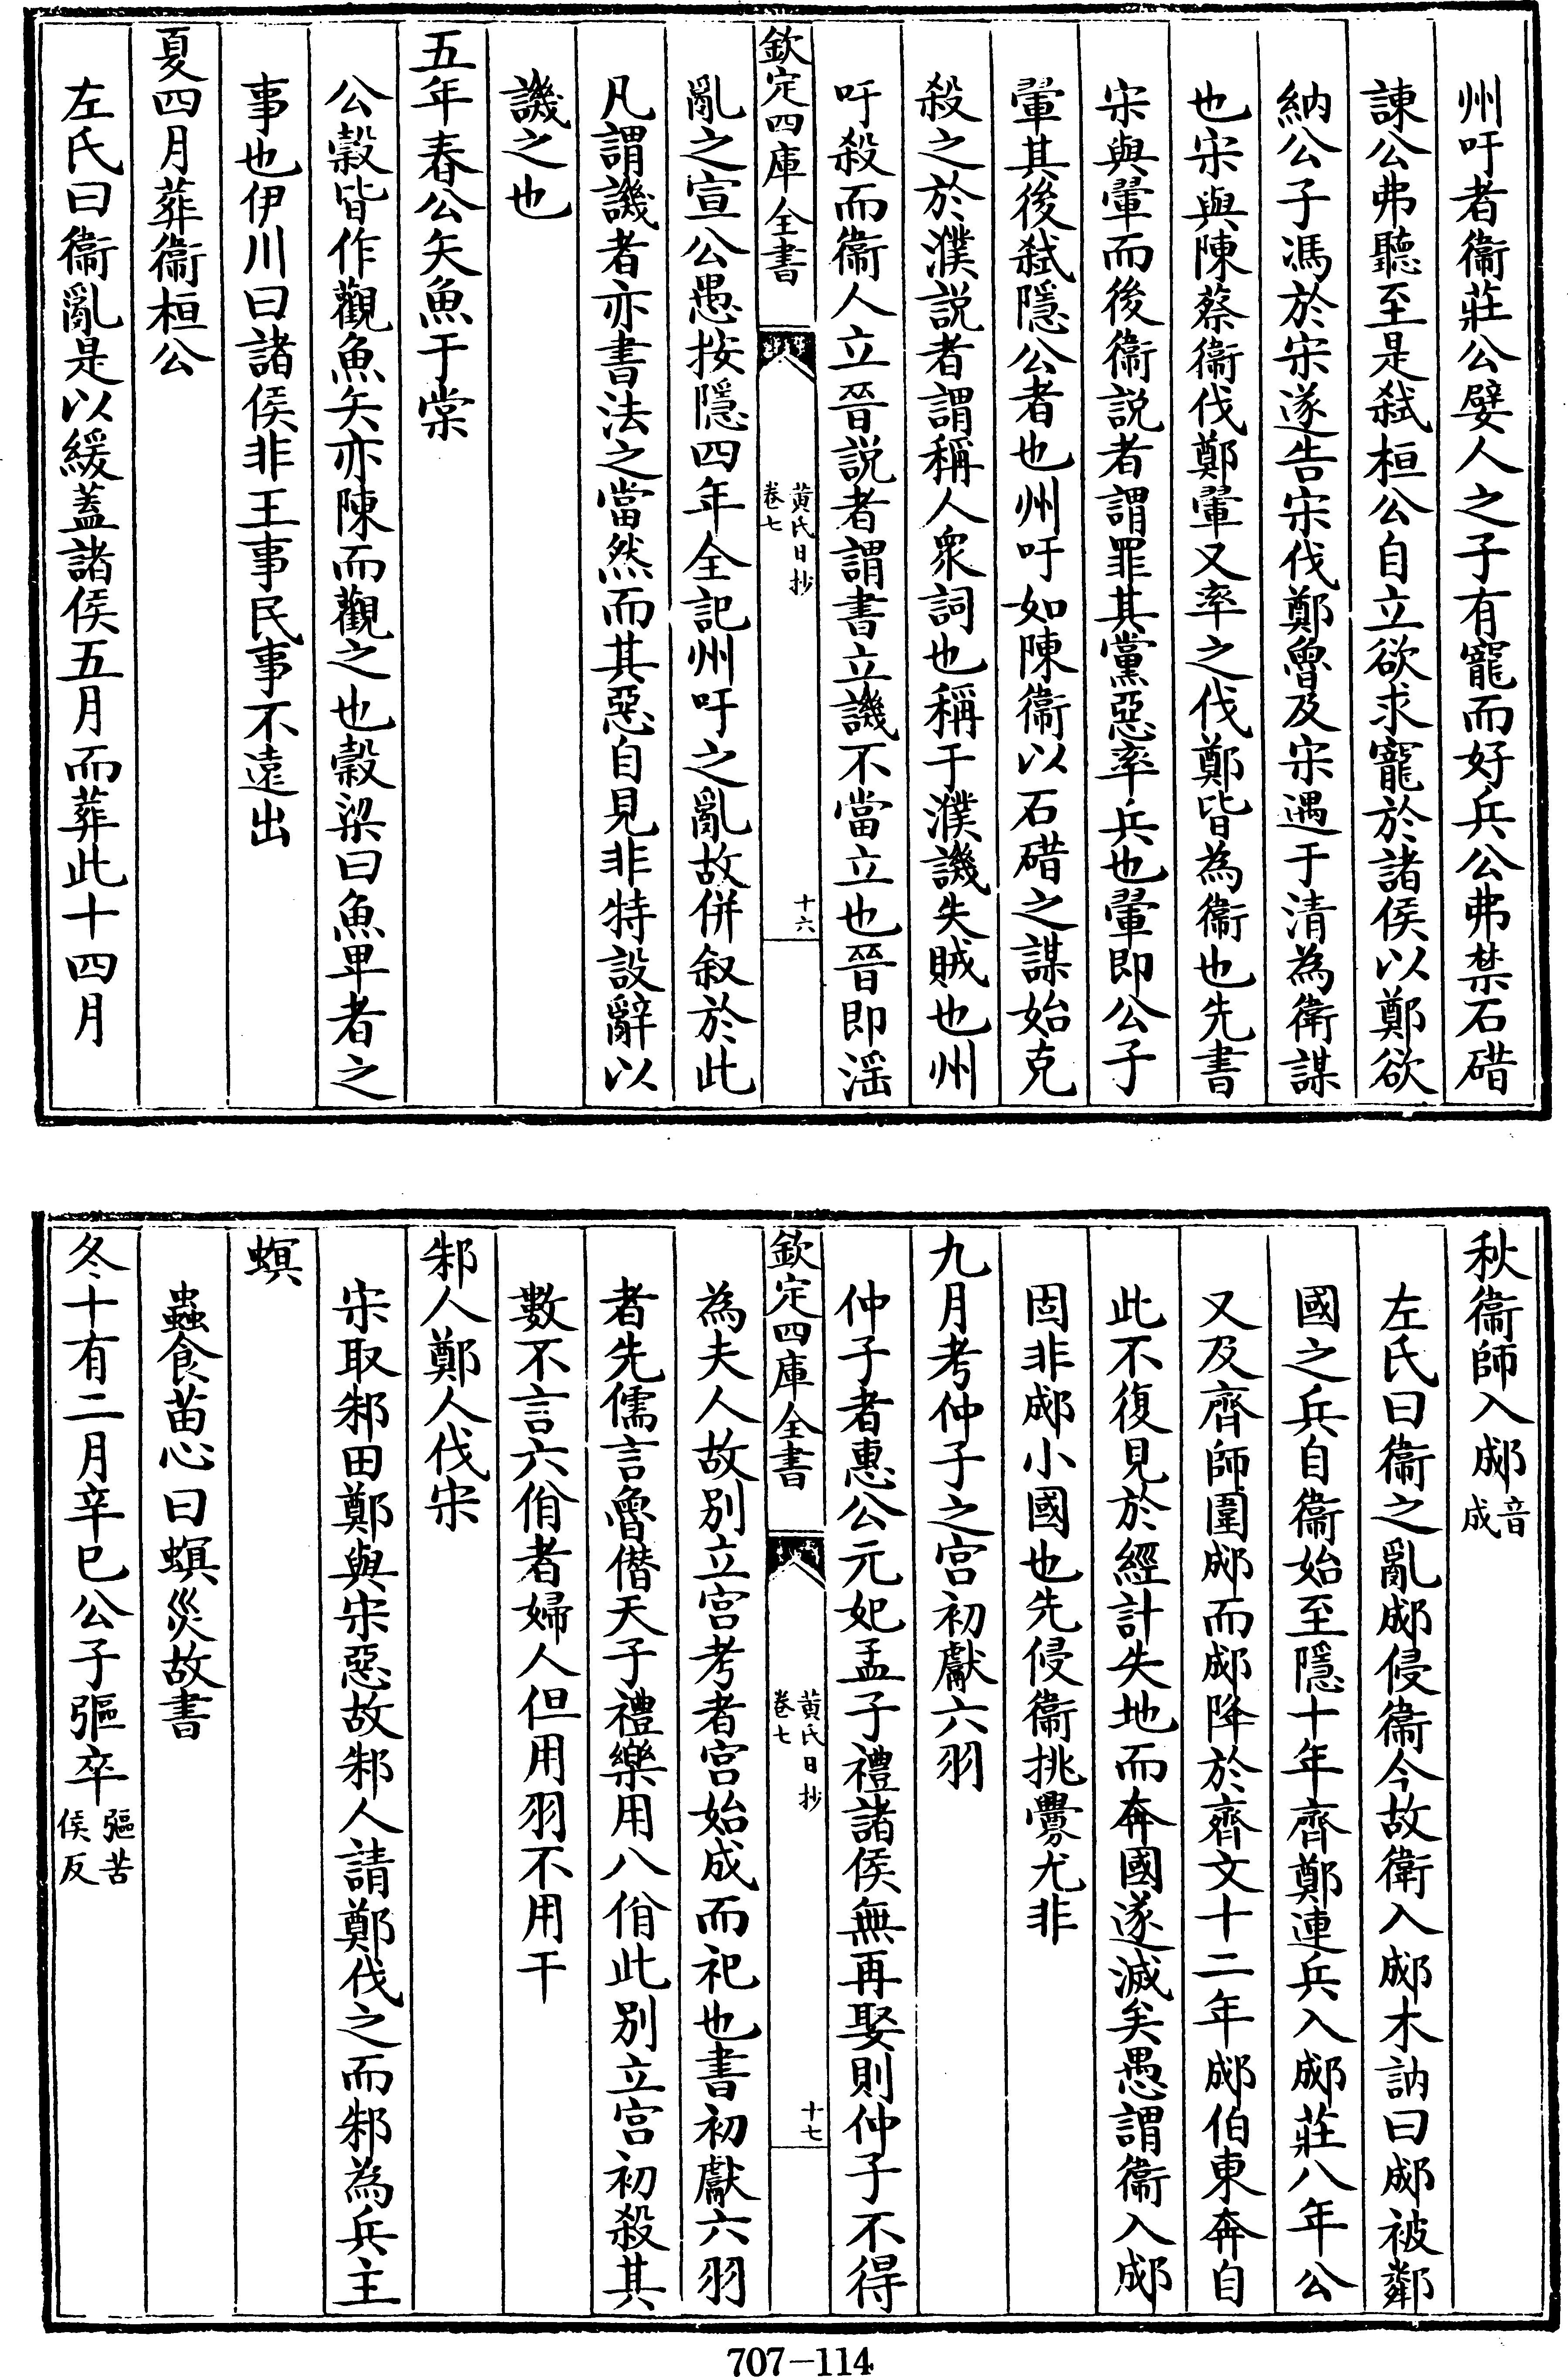 州吁者衞莊公嬖人之子有寵而好兵公弗禁石碏
諫公弗聽至是弑桓公自立欲求寵於諸侯以鄭欲
納公子馮於宋遂告宋伐鄭魯及宋遇于清為衛謀
也宋與陳蔡衞伐鄭翬又率之伐鄭皆為衞也先書
宋與翬而後衞説者謂罪其黨惡率兵也翬即公子
翬其後弑隱公者也州吁如陳衞以石碏之謀始克
殺之於濮説者謂稱人衆詞也稱于濮譏失賊也州
吁殺而衞人立晉説者謂書立譏不當立也晉即淫
欽定四庫全書
黄氏日抄
卷七
十六
亂之宣公愚按隱四年全記州吁之亂故併叙於此
凡謂譏者亦書法之當然而其惡自見非特設辭以
譏之也
五年春公矢魚于棠
公穀皆作觀魚矢亦陳而觀之也穀梁曰魚卑者之
事也伊川曰諸侯非王事民事不遠出
夏四月葬衞桓公
左氏曰衞亂是以緩蓋諸侯五月而葬此十四月
秋衞師入郕音成
左氏曰衞之亂郕侵衞今故衛入郕木訥曰郕被鄰
國之兵自衞始至隱十年齊鄭連兵入郕莊八年公
又及齊師圍郕而郕降於齊文十二年郕伯東奔自
此不復見於經計失地而奔國遂滅矣愚謂衞入郕
固非郕小國也先侵衞挑釁尤非
九月考仲子之宫初獻六羽
仲子者惠公元妃孟子禮諸侯無再娶則仲子不得
欽定四庫全書
黄氏日抄
卷七
十七
為夫人故别立宫考者宫始成而祀也書初獻六羽
者先儒言魯僭天子禮樂用八佾此别立宫初殺其
數不言六佾者婦人但用羽不用干
邾人鄭人伐宋
宋取邾田鄭與宋惡故邾人請鄭伐之而邾為兵主
螟
蟲食苗心曰螟災故書
冬十有二月辛巳公子彄卒彄苦侯反
707-114